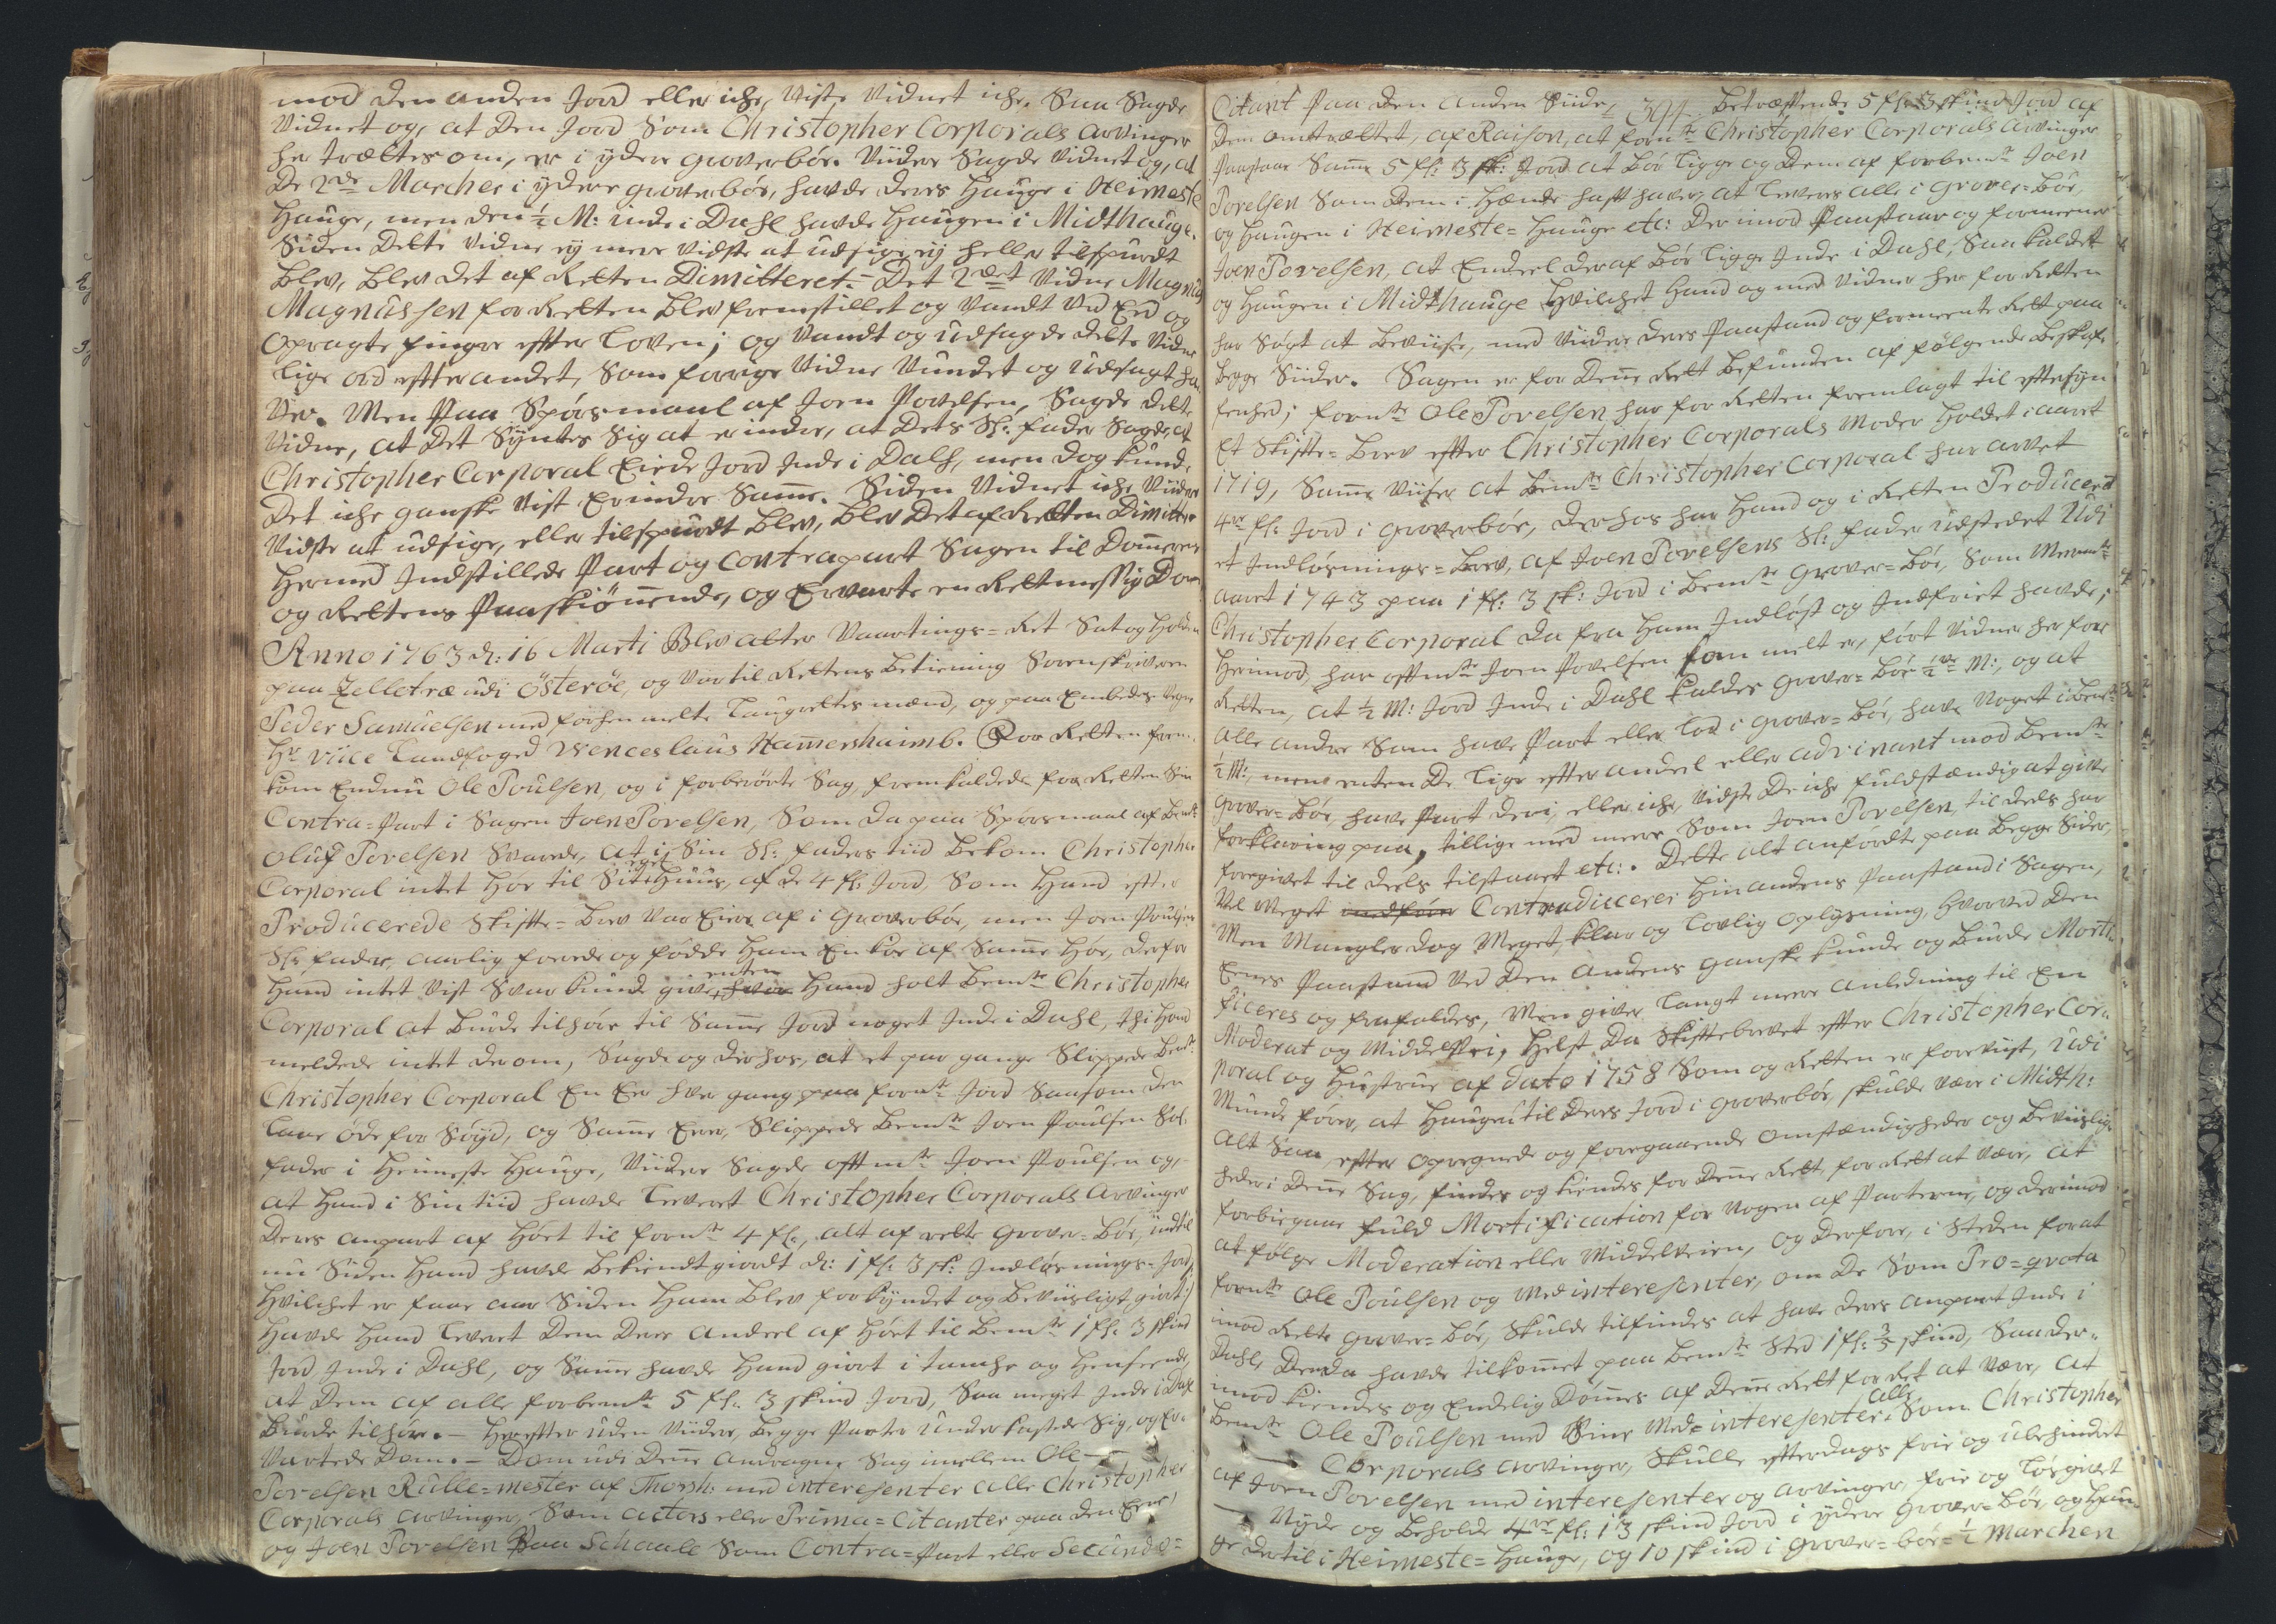 mod den anden Jord eller iche, Viste Vidnet iche. Saa Sagde
Vidnet og, at Den Jord Som Christopher Corporals Arvinger
her trættes om, er i ydere Groverbøe. Viidere Sagde Vidnet og, at
De 2de Marcher i ydere Groverbøe, havde deres Hauge i Heimeste
Hauge, men den ½ M: inde i Dahl havde Haugen i Midthauge.
Siden Dette Vidne ej mere Vidste at udsige ej heller tilspurdt
blev, blev det af Retten Dimitteret. Det 2det Vidne Magnus
Magnussen for Retten blev fremstillet og Vandt Ved Eed og
opragte finger efter Loven; og Vandt og udsagde dette Vidne
lige ord efter andet, Som forrige Vidne Vundet og udsagt ha
ver. Men Paa Spørsmaal af Joen Povelsen, Sagde dette
Vidne, at Det Syntes Sig at erindre, at Dets Sl: fader Sagde, at
Christopher Corporal Eiede Jord Inde i Dahl, men dog kunde
Det iche ganske Vist Erindre Same. Siden Vidnet iche Viidere
Vidste at udsige, eller tilspurdt blev, blev Det af Retten Dimittere
Hermed Indstillede Part og Contrapart Sagen til Domerens
og Rettens Paaskiønnende, og Ervarte en Retmessig Dom
Anno 1763 d: 16 Marti Blev atter Vaartings=Ret Sat og Holden
paa Zelletræ udi Østerøe, og Var til Rettens betiening Sorenskriveren
Peder Samuelsen med forhen melte Laugrettes mænd, og paa Embeds Vegne
Hr Viice Landfoged Wenceslaus Hamershaimb. For Retten frem
kom Endnu Ole Poulsen, og i forberørte Sag, fremkaldede for Retten Sin
Contra=Part i Sagen Joen Povelsen, Som da paa Spørsmaal af bemte
Oluf Povelsen Svarede, at i Sin Sl: faders tiid bekom Christopher
Corporal intet Høe til Sit eget Huus, af de 4 fl: Jord, Som Hand efter
Producerede Skifte=brev Var Eiere af i Groverbøe, men Joen Poulsens
Sl: fader, aarlig forede og fødde ham En Koe af Same Høe, derfor
Hand intet Vist Svar kunde give, enten Hand holt bemte Christopher
Corporal at burde tilhøre til Same Jord noget Inde i Dahl, thi Hand
meldede intet derom, Sagde og derhos, at et par gange Slippede bemte
Christopher Corporal En Ere hver gang paa fornte Jord Saasom den
laae øde for Søyd, og Same Erer, Slippede bemte Joen Poulsen Sal:
fader i Heimeste Hauge, Viidere Sagde oftmte Joen Poulsen og,
at Hand i Sin tiid havde leveret Christopher Corporals Arvinger
Deres anpart af Høet til fornte 4 fl:, alt af rette Grover=bøe, indtil
nu Siden Hand havde bekiendt giordt d: 1 fl: 3 sk: Indløsnings=Jord,
hvilchet er faae aar Siden Ham blev forkyndet og beviisligt giort;
Havde Hand levert Dem Deres andeel af Høet til bemte 1 fl: 3 Skind
Jord Inde i Dahl, og Same havde Hand giort i tanche og Henseende,
at Dem af alle forbemte 5 fl: 3 skind Jord, Saa meget Inde i Dahl
burde tilhøre. – Herefter uden Viidere, begge Parter underkastede Sig, og Er=
vartede Dom. – Dom udi Dene Andragne Sag imellem Ole
Povelsen Rulle=mester af Thorsh: med interesenter alle Christopher
Corporals Arvinger, Som Actors eller Prima=Citanter paa den Eene,
og Joen Povelsen Paa Schaale Som Contra=Part eller Secunde=
394
Citant Paa den anden Siide, betræffende 5 fl: 3 skind Jord af
Dem omtrættet, af Raison, at fornte Christopher Corporals Arvinger
Paastaar Same 5 fl: 3 sk: Jord at bør ligge og Dem af forbemte Joen
Povelsen Som Dem i Hænde haft haver, at leveres alle i Grover=bøe,
og Haugen i Heimeste=Hauge etc: Derimod Paastaar og formeener
Joen Povelsen, at Endeel deraf bør ligge Inde i Dahl, Saa kaldet
og Haugen i Midthauge hvilchet Hand og med Vidner her for Retten
har Søgt at beviise, med Viidere deres Paastand og formeente Ret paa
begge Siider. Sagen er for Dene Ret befunden af følgende beskaf=
fenhed; fornte Ole Povelsen har for Retten fremlagt til eftersyn
Et Skifte=brev efter Christopher Corporals Moder Holdet i aaret
1719, Same Viiser at bemte Christopher Corporal har arvet
4re fl: Jord i Groverbøe, derhos har Hand og i Retten Producert
et Indløsnings=brev, af Joen Povelsens Sl: fader udstedet Udi
aaret 1743 paa 1 fl: 3 sk: Jord i bemte Grover=bøe, Som Meermte
Christopher Corporal da fra Ham Indløst og Indfriet havde;
Herimod, har oftmte Joen Povelsen som melt er, ført Vidner her for
Retten, at ½ M: Jord Inde i Dahl kaldes Grover=bøe ½ve M:, og at
alle andre Som have Part eller lod i Grover=bøe, have Noget i bemte
½ M:, men enten De lige efter andeel eller advinant mod bemte
Grover=bøe, have Part deri, eller iche, Vidste De iche fuldstændig at give
forklaring paa, tillige med meere Som Joen Povelsen, til deels har
foregivet til deels tilstaaet etc:. Dette alt anførdte paa begge Sider,
Vel Meget Contradiccerer Hinandens Paastand i Sagen,
Men Mangler dog Meget, klar og lovlig Oplysning, hvorved Den
Eenes Paastand Ved Den Andens ganske kunde og burde Morti=
ficeres og frafaldes, Men giver langt meere anledning til En
Moderat og Middelvei, Helst Da Skiftebrevet efter Christopher Cor=
poral og Hustrue af dato 1758 Som og Retten er foreviist, Udi
Munde fører, at Haugen til Deres Jord i Groverbøe, skulde være i Midth:
Alt Saa, efter Opregnede og foregaaende Omstændigheder og beviislig
heder i Dene Sag, findes og kiendes for Dene Ret, for Ret at Være, at
forbiegaae fuld Mortification for Nogen af Parterne, og derimod
at følge Moderation eller Middelveien, og Derfore, i Steden for at
fornte Ole Poulsen og Medinteresenter, om De Som Pro=qvota
imod Rette Grover=bøe, Skulde tilfindes at have deres anpart Inde i
Dahl, Denda havde tilkomet paa bemte Sted 1 fl: 3/5 skind, Saa der=
imod kiendes og Endelig Dømmes af Dene Ret for Ret at Være, at
bemte Ole Poulsen med Sine Med=interesenter, alle Som Christopher
Corporals Arvinger, Skulle efterdags frie og ubehindret
af Joen Povelsen med interesenter og Arvinger, frie og løsgivet
Nyde og beholde 4re fl: 13 skind Jord i ydere Grover=bøe, og Hau=
ge dertil i Heimeste=Hauge, og 10 skind i Grover=bøe=½ Marchen